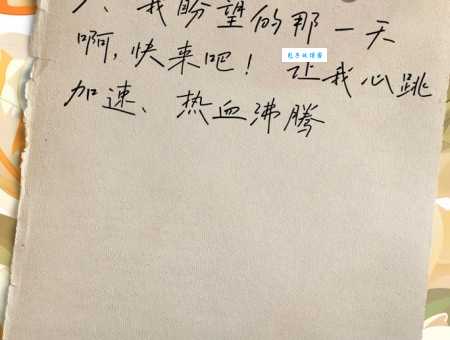 我盼望的那一天
啊,快来吧! 让我心跳
加速、热血沸腾